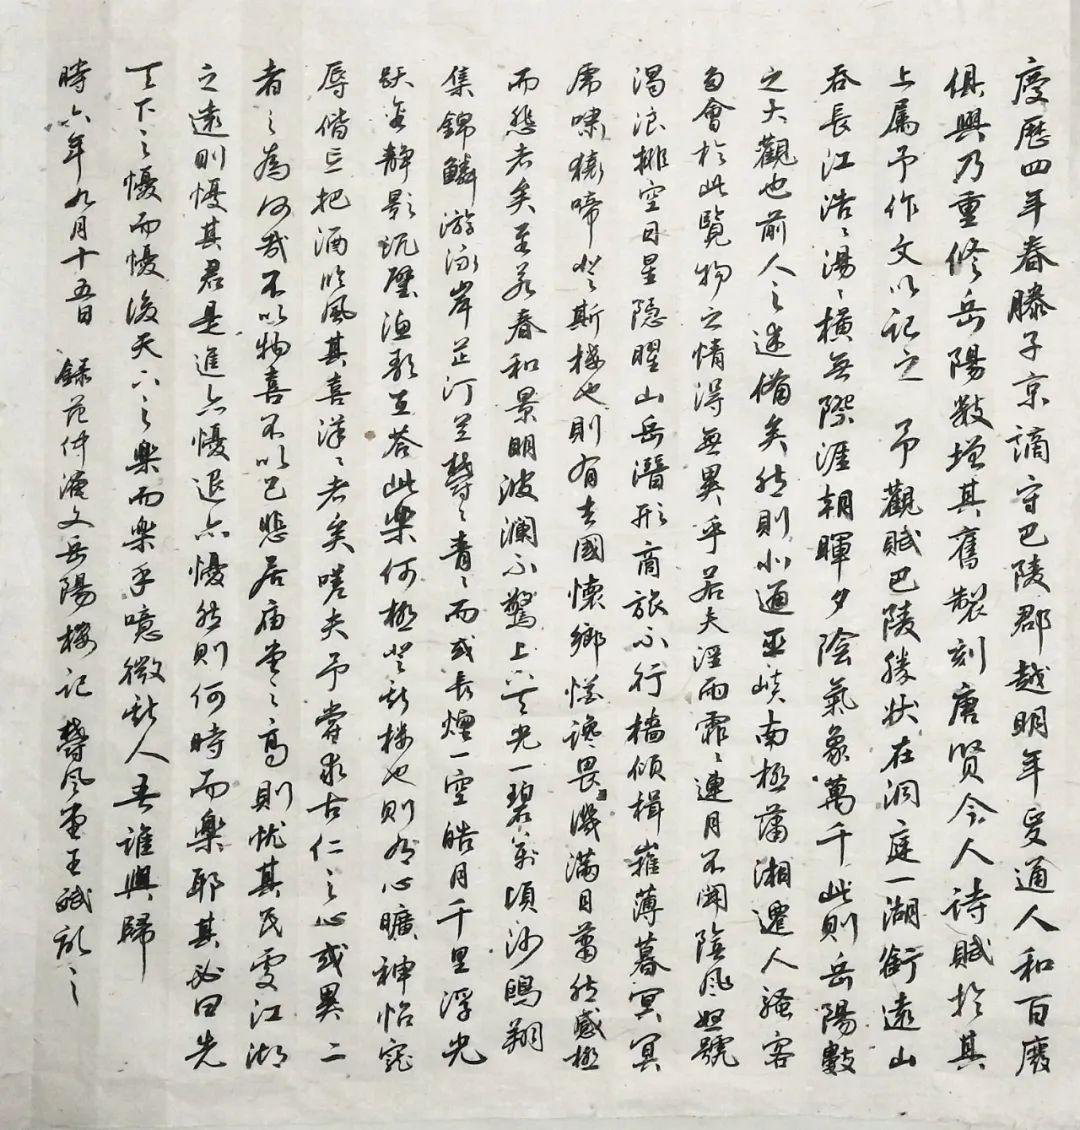 慶歷四年春滕子京謫守巴陵郡越明年政通人和百廢
俱興乃重修岳陽樓增其舊製刻唐賢今人詩賦於其
上属予作文以記之 予觀夫巴陵勝狀在洞庭一湖銜遠山
吞長江浩〻湯〻橫無際涯朝暉夕陰氣象萬千此則岳陽樓
之大觀也前人之述備矣然則北通巫峽南極瀟湘遷人騷客
多會於此覽物之情得無異乎若夫淫雨霏〻連月不開陰風怒號
濁浪排空日星隱曜山岳潛形商旅不行檣傾楫摧薄暮冥冥
虎嘯猿啼登斯樓也則有去國懷鄉憂讒畏譏滿目蕭然感極
而悲者矣至若春和景明波瀾不驚上下天光一碧萬頃沙鷗翔
集錦鱗游泳岸芷汀蘭鬱〻青〻而或長煙一空皓月千里浮光
躍金靜影沉璧漁歌互答此樂何極登斯樓也則有心曠神怡寵
辱偕忘把酒臨風其喜洋〻者矣嗟夫予嘗求古仁人之心或異二
者之為何哉不以物喜不以己悲居廟堂之高則憂其民處江湖
之遠則憂其君是進亦憂退亦憂然則何時而樂耶其必曰先
天下之憂而憂後天下之樂而樂乎噫微斯人吾誰與歸
時六年九月十五日 錄范仲淹文岳陽樓記 風堂王斌